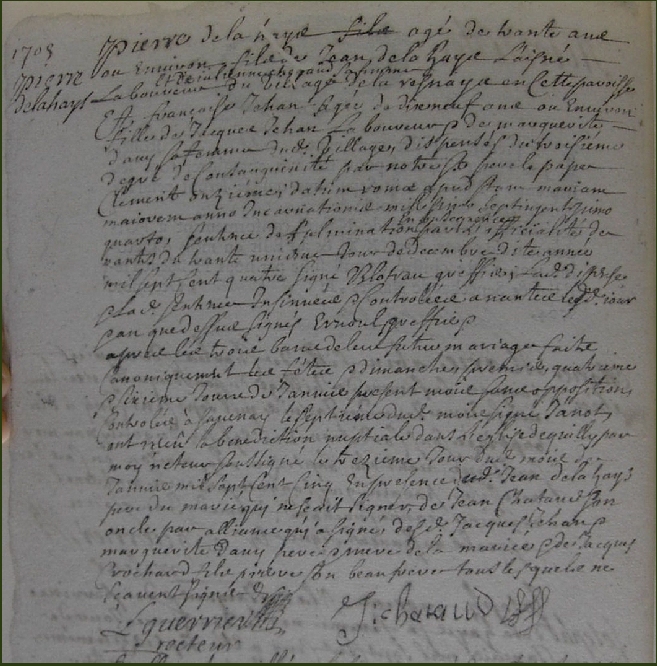 1705
Pierre
delahaye
Pierre de la haye fils agé de trante ans
ou Environ fils de Jean de la haye Laisné
Laboureur du village de la en Cette paroisse
Et françoise Jehan agée de dixneuf ans ou Environ
fille de Jacques Jehan Laboureur & de marguerite
dauy sa femme dud. village, dispensés du troisieme
degré de Consanguinité par notre St pere le pape
Clement onziéme, datum romæ apud stam mariam
maiorem anno Incarnationis millesimo septingentesimo
quarto, sentence de fulmination de L'officialité de
nantes du trante unieme Jour de decembre dite année
mil sept Cent quatre signé greffier, Lad. dispense
& lad. sentence Insinuée & Controllée a nantes lesd. iour
& an que dessus signés greffier
apres les trois bans de leur futur mariage faits
canoniquement les fêtes & dimanches premier, quatrieme
& sixieme Jours de Janvier present mois sans opposition,
Controllés à sauenay le septieme dud. mois signé Janot,
ont receu la benediction nuptiale dans l'eglise de quilly par
moy recteur soussigné le trezieme Jour dud. mois de
Janvier mil sept Cent Cinq En presence dud. Jean de la haye
pere du marié qui ne scait signer, de Jean son
oncle par alliance qui a signé, desd. Jacques Jehan &
marguerite dauy pere & mere de la mariée & de Jacques
Rochard son beaufrere tous lesquels ne
scavent signer
Lguerrier
recteur